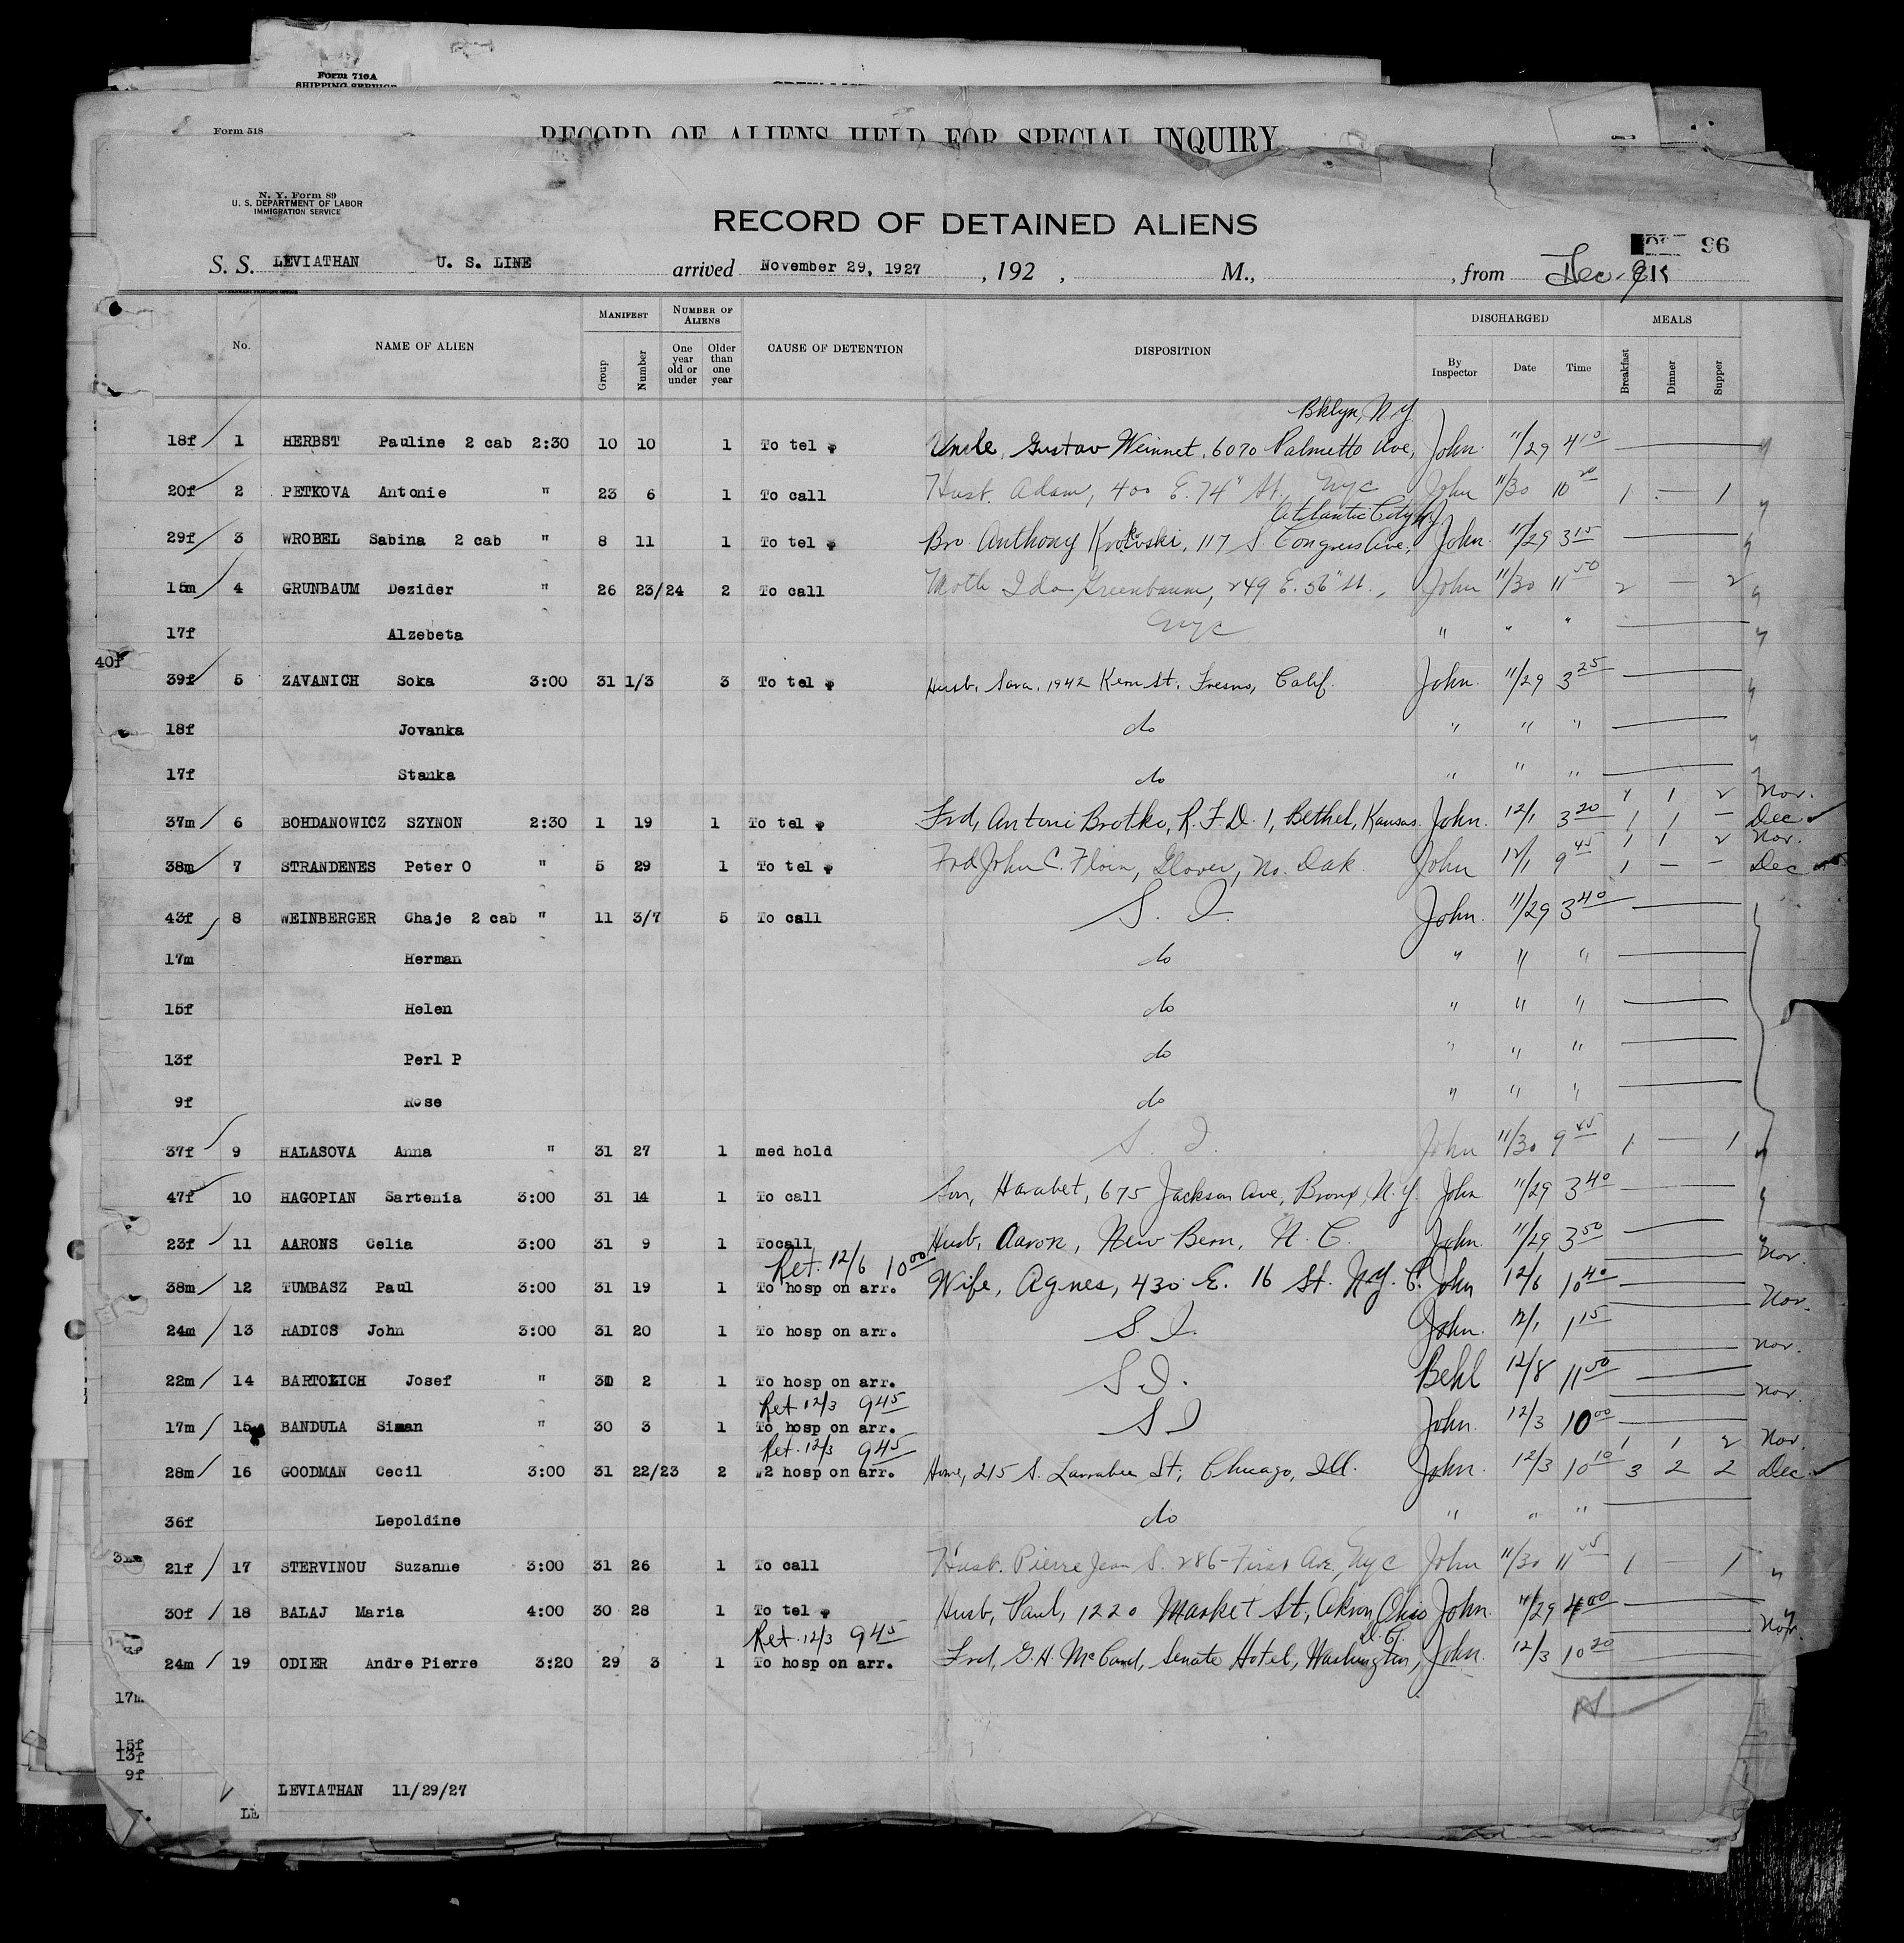 Form 710A
SHIPPING SERVICE
Form 518
RECORD OF ALIENS HELD FOR SPECIAL INQUIRY
N. Y. Form 89
U. S. DEPARTMENT OF LABOR
IMMIGRATION SERVICE
RECORD OF DETAINED ALIENS
96
S. S. LEVIATHAN U. S. LINE arrived November 29, 1927 , 192 , M., , from
MANIFEST NUMBER OF ALIENS DISCHARGED MEALS
No. NAME OF ALIEN Group Number One year old or under Older than one year CAUSE OF DETENTION DISPOSITION By Inspector Date Time Breakfast Dinner Supper
Bklyn, N Y
18f 1 HERBST Pauline 2 cab 2:30 10 10 1 To tel Uncle, Gustav Weinnet, 6070 Palmetto Ave, John. 11/29 4 10
20f 2 PETKOVA Antonie " 23 6 1 To call Husb. Adam, 400 E. 74" St. NYC John 11/30 10 20 1 — 1
Atlantic City NJ
29f 3 WROBEL Sabina 2 cab " 8 11 1 To tel Bro. Anthony 117 S. Congress Ave, John. 11/29 3 15
15m 4 GRUNBAUM Dezider " 26 23/24 2 To call Moth Ida Greenbaum, 249 E. 56" St., John 11/30 11 50 2 — 2
17f Alzebeta NYC " " "
40f
39f 5 ZAVANICH Soka 3:00 31 1/3 3 To tel Husb. Sava, 1942 Kern St. Fresno, Calif. John. 11/29 3 25
18f Jovanka do " " "
17f Stanka do " " "
1 2 Nov.
37m 6 BOHDANOWICZ SZYNON 2:30 1 19 1 To tel Frd, Antoni Brotko, R. F. D. 1, Bethel, Kansas John. 12/1 3 20 1 1 — Dec
1 1 2 Nov.
38m 7 STRANDENES Peter O " 5 29 1 To tel Frd John C. Floin, Glover, No. Dak. John 12/1 9 45 1 — — Dec
43f 8 WEINBERGER Chaje 2 cab " 11 3/7 5 To call S. I. John. 11/29 3 40
17m Herman do " " "
15f Helen do " " "
13f Perl P do " " "
9f Rose do " " "
37f 9 HALASOVA Anna " 31 27 1 med hold S. I. John 11/30 9 45 1 — 1
47f 10 HAGOPIAN Sartenia 3:00 31 14 1 To call Son, Harabet, 675 Jackson Ave, Bronx, N. Y. John 11/29 3 40
23f 11 AARONS Celia 3:00 31 9 1 Tocall Husb, Aaron, New Bern, N. C. John. 11/29 3 50
Ret. 12/6 10 00 Nov.
38m 12 TUMBASZ Paul 3:00 31 19 1 To hosp on arr. Wife, Agnes, 430 E. 16 St. N.Y. C. John 12/6 10 40
Nov.
24m 13 RADICS John 3:00 31 20 1 To hosp on arr. S. I. John. 12/1 1 15
Nov.
22m 14 BARTOLICH Josef " 30 2 1 To hosp on arr. S I. Behl 12/8 11 50
Ret 12/3 9 45 Nov.
17m 15 BANDULA Siman " 30 3 1 To hosp on arr. S I John. 12/3 10 00
Ret. 12/3 9 45 1 1 2 Nov.
28m 16 GOODMAN Cecil 3:00 31 22/23 2 2 hosp on arr. Home, 215 S. Larrabee St, Chicago, Ill. John. 12/3 10 10 3 2 2 Dec.
36f Lepoldine do " " "
21f 17 STERVINOU Suzanne 3:00 31 26 1 To call Husb. Pierre Jean S. 286 - First Ave, NYC John 11/30 11 1 1
30f 18 BALAJ Maria 4:00 30 28 1 To tel Husb, Paul, 1220 Market St, Akron, Ohio John. 11/29 4 00
Ret. 12/3 9 45 D. C. Nov.
24m 19 ODIER Andre Pierre 3:20 29 3 1 To hosp on arr. Frd, G. H. Senate Hotel, Washington, John. 12/3 10 20
17m
15f
13f
9f
LEVIATHAN 11/29/27
LE